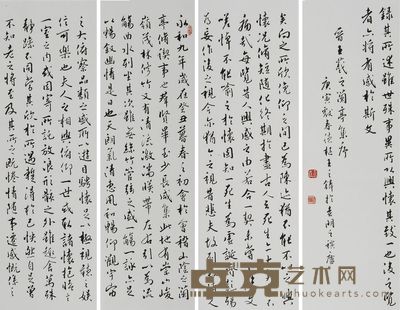 永和九年歲在癸丑暮春之初會於會稽山陰之蘭
亭修禊事也群賢畢至少長咸集此地有崇山峻
嶺茂林修竹又有清流激湍映帶左右引以為流
觴曲水列坐其次雖無絲竹管弦之盛一觴一詠亦足
以暢敘幽情是日也天朗氣清惠風和暢仰觀宇宙
之大俯察品類之盛所以遊目騁懷足以極視聽之娛
信可樂也夫人之相與俯仰一世或取諸懷抱悟言
一室之內或因寄所託放浪形骸之外雖趣舍萬殊
靜躁不同當其欣於所遇暫得於己怏然自足曾
不知老之將至及其所之既倦情隨事遷感慨係之
矣向之所欣俯仰之間已為陳迹猶不能不以之興
懷況脩短隨化終期於盡古人云死生亦大矣豈不
痛哉每覽昔人興感之由若合一契未嘗不臨文
嗟悼不能喻之於懷固知一死生為虛誕齊彭殤
為妄作後之視今亦猶今之視昔悲夫故列敘時人
錄其所述雖世殊事異所以興懷其致一也後之覽
者亦將有感於斯文
晉王羲之蘭亭集序
庚寅